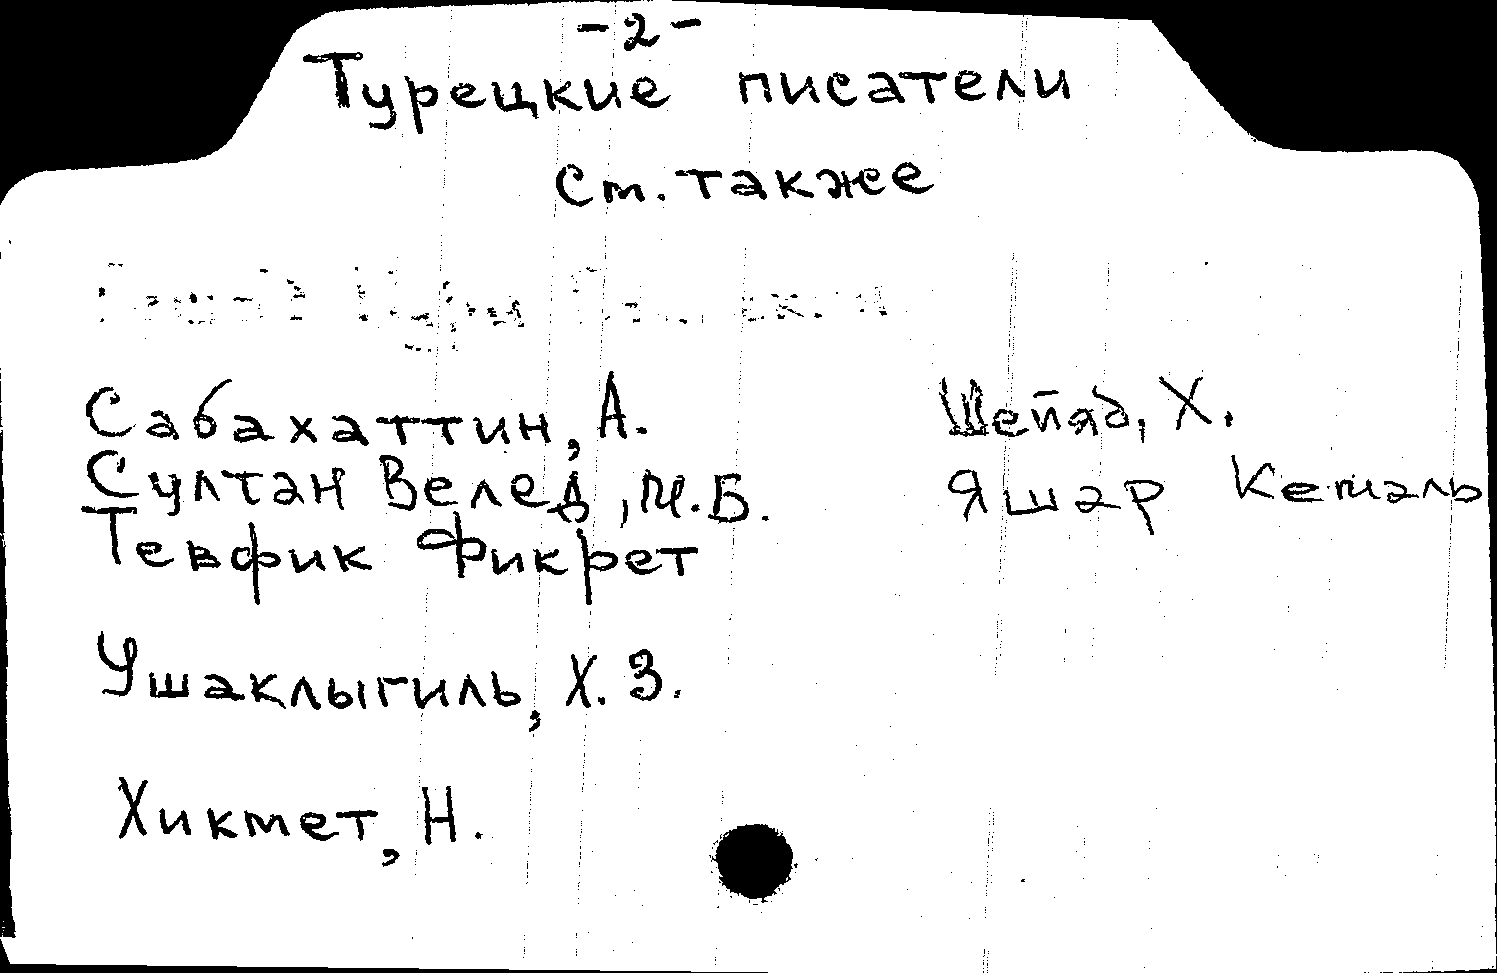 -2-
Турецкие писатели
см. также
Сабахаттин, А.
Султан Велед, М.Б.
Тевфик Фикрет
Ушаклыгиль, Х. З.
Хикмет, Н.
Шейяд, Х.
Яшар Кемаль